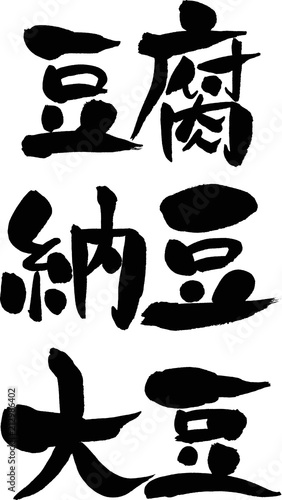 豆腐
納豆
大豆